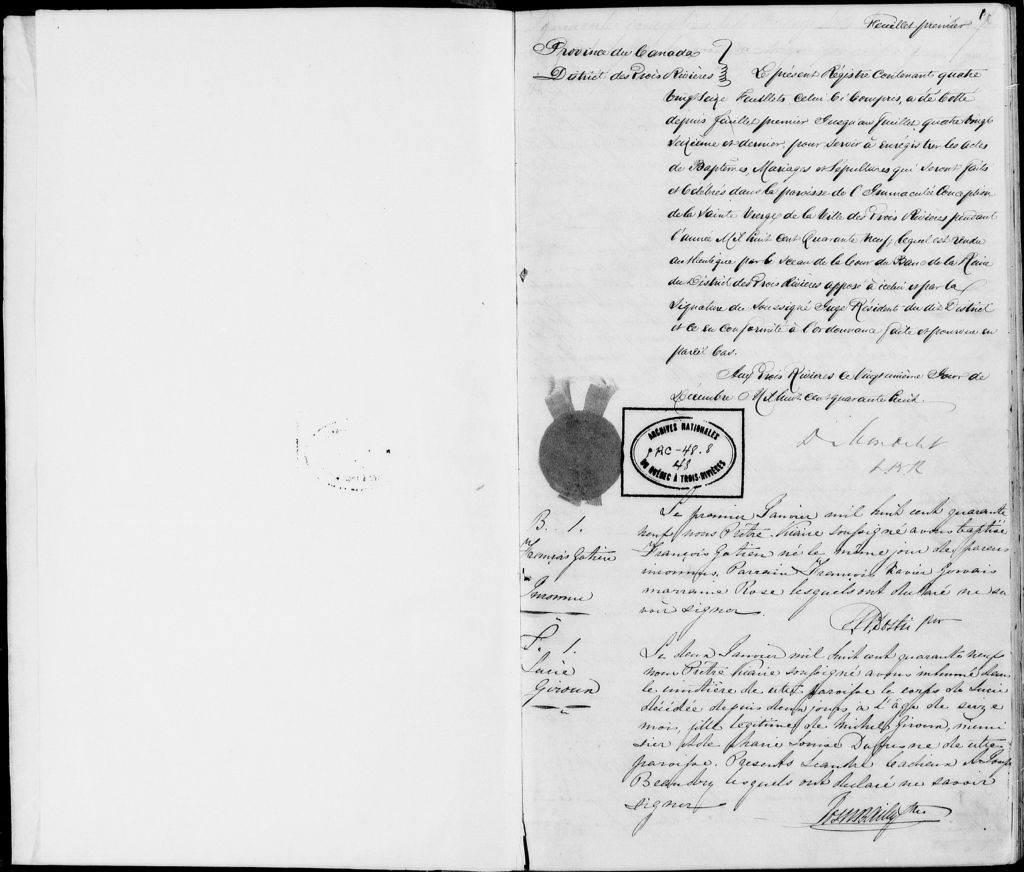 Feuillet premier
Province du Canada
District des Trois Rivières } Le présent Régistre Contenant quatre
vingt seize feuillets celui ci Compris, a été Cotté
depuis feuillet premier Jusqu'au feuillet quatre vingt
seizième et dernier, pour servir à enrégistrer les actes
de Baptêmes, Mariages et Sépultures qui seront faits
et Célébrés dans la paroisse de l'Immaculée Conception
de la Sainte Vierge de la Ville des Trois Rivières pendant
l'année Mil huit cent Quarante Neuf, lequel est rendu
authentique par le Sceau de la Cour du Banc de la Reine
du District des Trois Rivières apposé à icelui et par la
Signature du Soussigné Juge Résident du dit District
et ce en Conformité à l'ordonnance faite et pourvue en
pareil Cas.
Aux Trois Rivières ce vingt unième Jour de
Décembre Mil huit cent quarante huit.
ARCHIVES NATIONALES
48.8
48
DU QUÉBEC À TROIS-RIVIÈRES
B. 1.
François Gatien
Inconnu
Le premier Janvier mil huit cent quarante
neuf nous Prêtre Vicaire soussigné avons baptisé
François Gatien né le même jour de parens
inconnus. Parrain François Xavier Gervais
marraine Rose lesquels ont déclaré ne sa
voir signer
S. 1.
Lucie
Giroux
Le deux Janvier mil huit cent quarante neuf
nous Prêtre Vicaire soussigné avons inhumé dans
le cimetière de cette paroisse le corps de Lucie
décédée depuis deux jours, à l'âge de seize
mois, fille légitime de Michel Giroux, menui
sier et de Marie Louise Dufresne de cette
paroisse. Présents Leandre Cadieux &
Beaudry lesquels ont déclaré ne savoir
signer